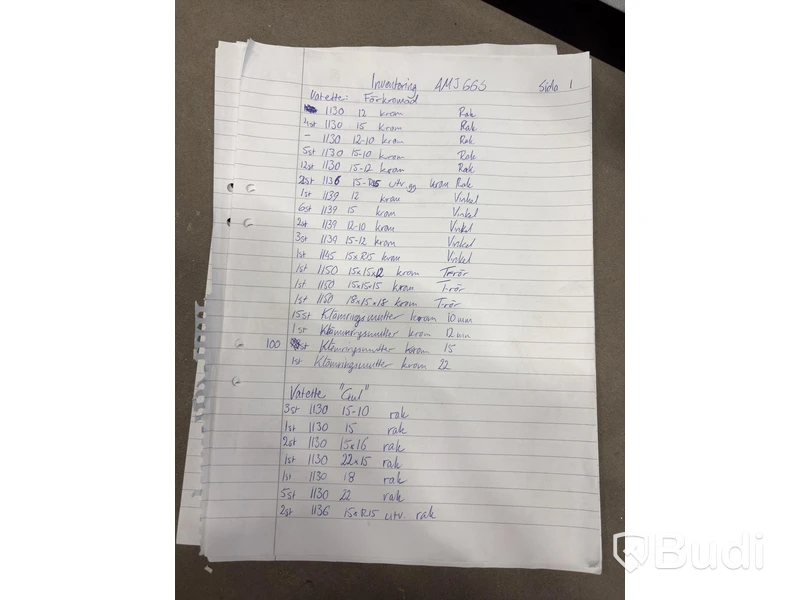 Inventering AMJ GGS Sida 1
Vatette: Förkromad
1130 12 krom Rak
4st 1130 15 krom Rak
- 1130 12-10 krom Rak
5st 1130 15-10 krom Rak
12st 1130 15-12 krom Rak
2st 1136 15-R15 utv. gg krom Rak
1st 1139 12 krom Vinkel
6st 1139 15 krom Vinkel
2st 1139 12-10 krom Vinkel
3st 1139 15-12 krom Vinkel
1st 1145 15xR15 krom Vinkel
1st 1150 15x15x12 krom T-rör
1st 1150 15x15x15 krom T-rör
1st 1150 18x15x18 krom T-rör
15st Klämringsmutter krom 10mm
1st Klämringsmutter krom 12mm
100 st Klämringsmutter krom 15
1st Klämringsmutter krom 22
Vatette "Gul"
3st 1130 15-10 rak
1st 1130 15 rak
2st 1130 15x16 rak
1st 1130 22x15 rak
1st 1130 18 rak
5st 1130 22 rak
2st 1136 15xR15 utv. rak
Budi